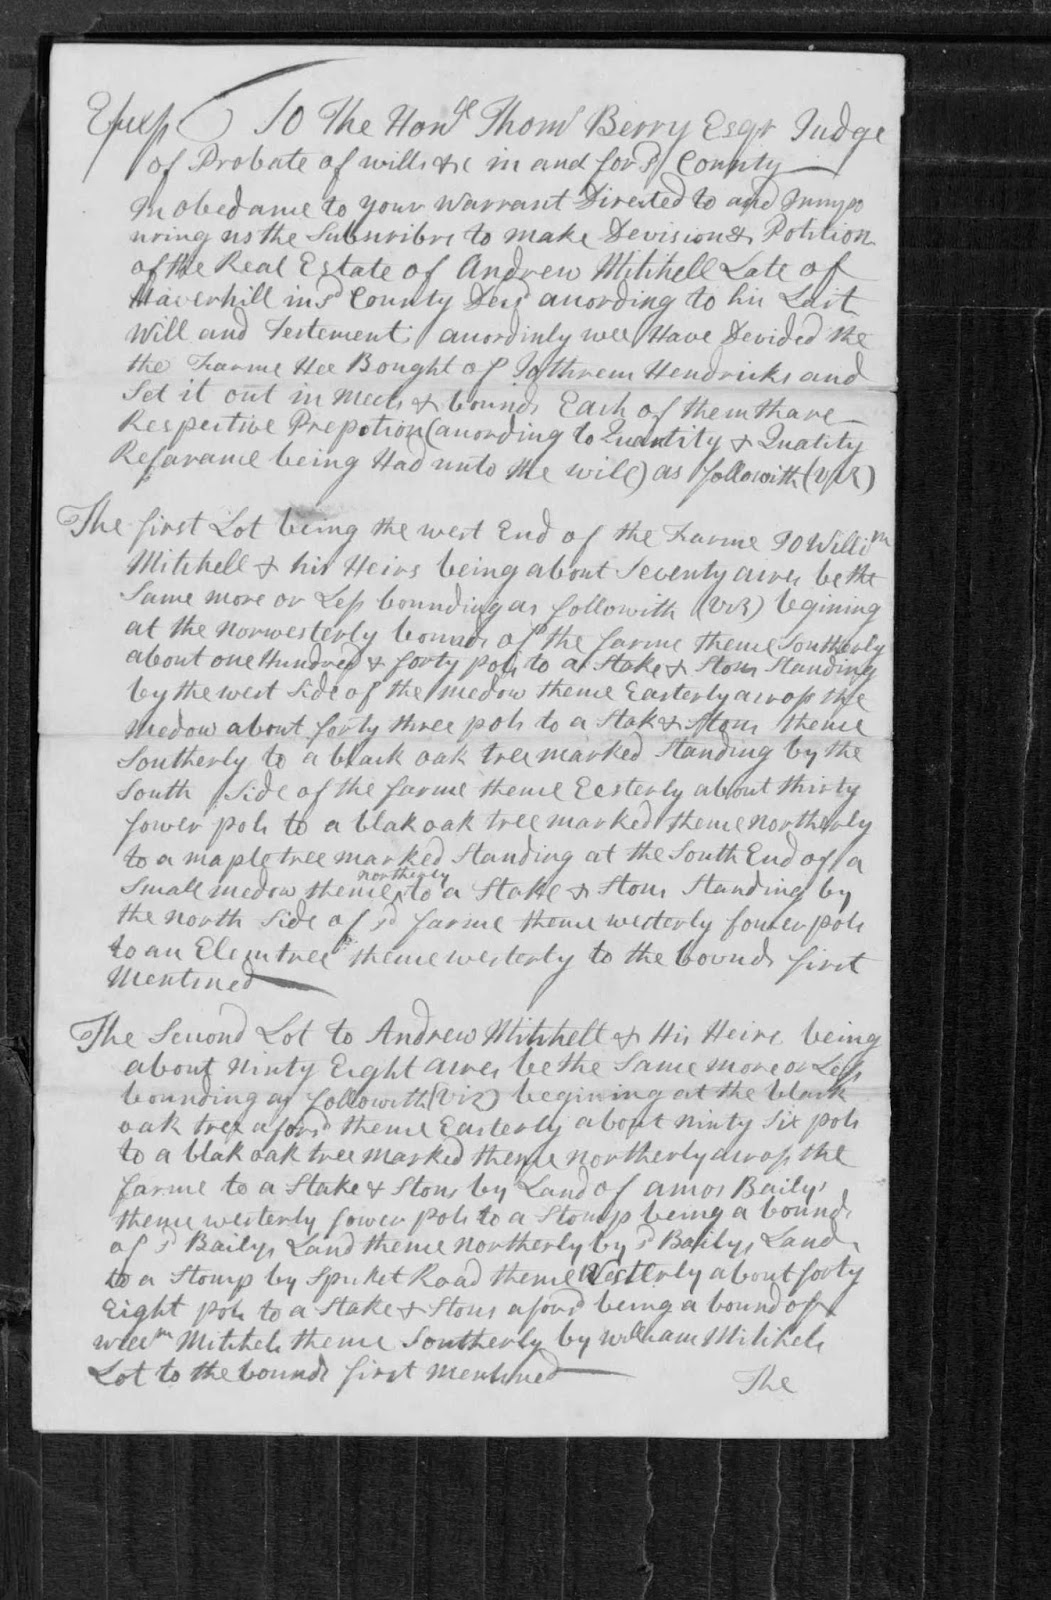 Essex To The Honble Thoms Berry Esqr Judge
of Probate of wills &c in and for sd County
In obedance to your warrant Directed to and Impo
wring us the Subscribrs to make Devision & Potition
of the Real Estate of Andrew Mitchell Late of
Haverhill in sd County Decd acording to his Last
Will and Testement: acordinly wee Have Devided the
the Farme Hee Bought of Jothrem Hendricks and
Set it out in meets & bounds Each of them thare
Respective Prepotion (acording to Quantity & Quatity
Refarance being Had unto the will) as followith (viz)
The first Lot being the west End of the Farme To Willim
Mitchell & his Heirs being about Seventy acres be the
Same more or Less bounding as followith (viz) begining
at the norwesterly bounds of the farme thence Southerly
about one Hundred & forty pols to a Stake & Stons Standing
by the west Side of the medow thence Easterly across the
medow about forty three pols to a Stake & Stons thence
Southerly to a black oak tree marked Standing by the
South Side of the farme thence Eesterly about thirty
fower pols to a blak oak tree marked thence northerly
to a maple tree marked Standing at the South End of a
Small medow thence northerly to a Stake & Stons Standing by
the north Side of sd farme thence westerly fower pols
to an Elem tree thence westerly to the bounds first
Mentined
The Second Lot to Andrew Mitchell & His Heirs being
about Ninty Eight acres be the Same more or Less
bounding as followith (viz) begining at the black
oak tree aforsd thence Easterly about ninty Six pols
to a blak oak tree marked thence northerly across the
farme to a Stake & Stons by Land of amos Bailys
thence westerly fower pols to a Stomp being a bounds
of sd Bailys Land thence northerly by sd Bailys Land
to a Stomp by Spicket Road thence Westerly about forty
Eight pols to a Stake & Stons aforsd being a bound of
willm Mitchels thence Southerly by william Mitchels
Lot to the bounds first mentined
The